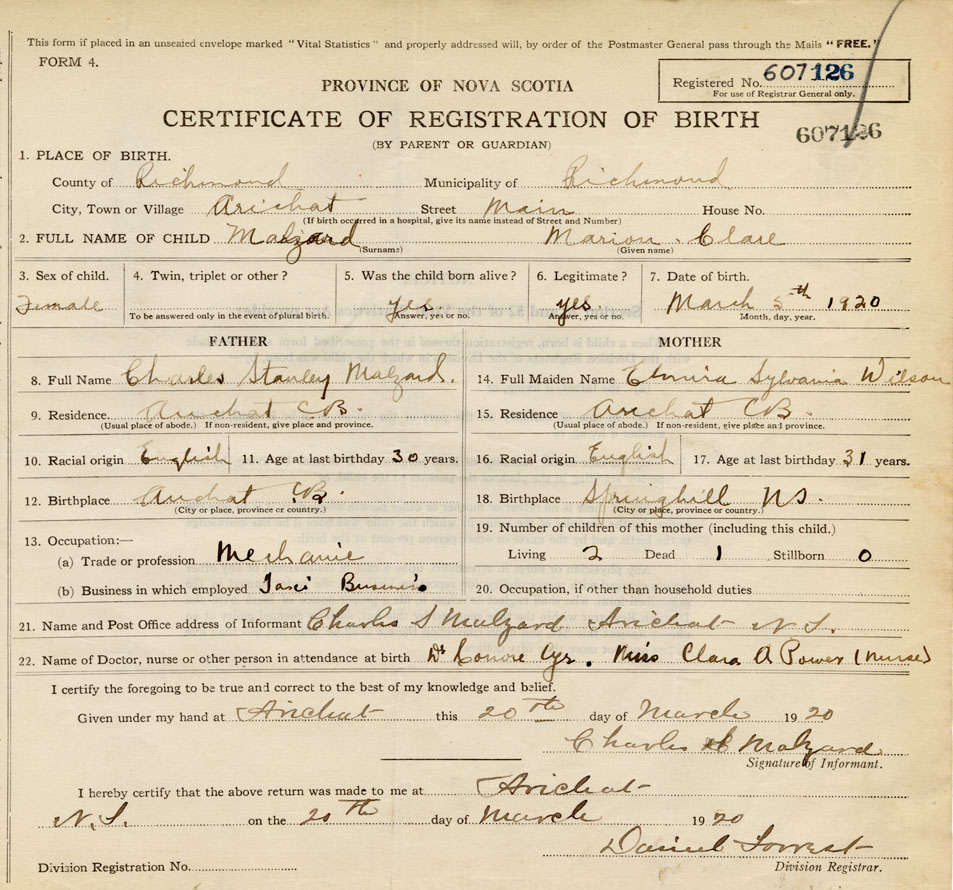 This form if placed in an unsealed envelope marked "Vital Statistics" and properly addressed will, by order of the Postmaster General pass through the Mails "FREE."
FORM 4.
Registered No. 607126
For use of Registrar General only.
PROVINCE OF NOVA SCOTIA
CERTIFICATE OF REGISTRATION OF BIRTH
607126
(BY PARENT OR GUARDIAN)
1. PLACE OF BIRTH.
County of Richmond Municipality of Richmond
City, Town or Village Arichat Street Main House No.
(If birth occurred in a hospital, give its name instead of Street and Number)
2. FULL NAME OF CHILD Malzard Marion Clare
(Surname) (Given name)
3. Sex of child. 4. Twin, triplet or other? 5. Was the child born alive? 6. Legitimate? 7. Date of birth.
Female yes yes March 5th 1920
To be answered only in the event of plural birth. Answer, yes or no. Answer, yes or no. Month, day, year.
FATHER MOTHER
8. Full Name Charles Stanley Malzard. 14. Full Maiden Name Elmira Sylvania Wilson
9. Residence. Arichat CB. 15. Residence Arichat CB.
(Usual place of abode.) If non-resident, give place and province. (Usual place of abode.) If non-resident, give place and province.
10. Racial origin English 11. Age at last birthday 30 years. 16. Racial origin English 17. Age at last birthday 31 years.
12. Birthplace Arichat CB. 18. Birthplace Springhill NS.
(City or place, province or country.) (City or place, province or country.)
13. Occupation:— 19. Number of children of this mother (including this child.)
(a) Trade or profession Mechanic Living 2 Dead 1 Stillborn 0
(b) Business in which employed Taxi Business 20. Occupation, if other than household duties
21. Name and Post Office address of Informant Charles S Malzard Arichat N.S.
22. Name of Doctor, nurse or other person in attendance at birth Dr . Miss Clara A Power (Nurse)
I certify the foregoing to be true and correct to the best of my knowledge and belief.
Given under my hand at Arichat this 20th day of March 1920
Charles S Malzard
Signature of Informant.
I hereby certify that the above return was made to me at Arichat
N.S. on the 20th day of March 1920
Daniel Forrest
Division Registration No. Division Registrar.